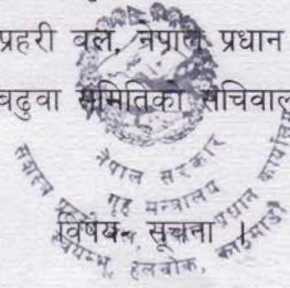 प्रहरी बल, नेपाल प्रधान
बढुवा समितिको सचिवाल
नेपाल सरकार
गृह मन्त्रालय
सशस्त्र प्रधान कार्यालय
विषय- सूचना ।
स्वयम्भू, हलचोक, काठमाडौं